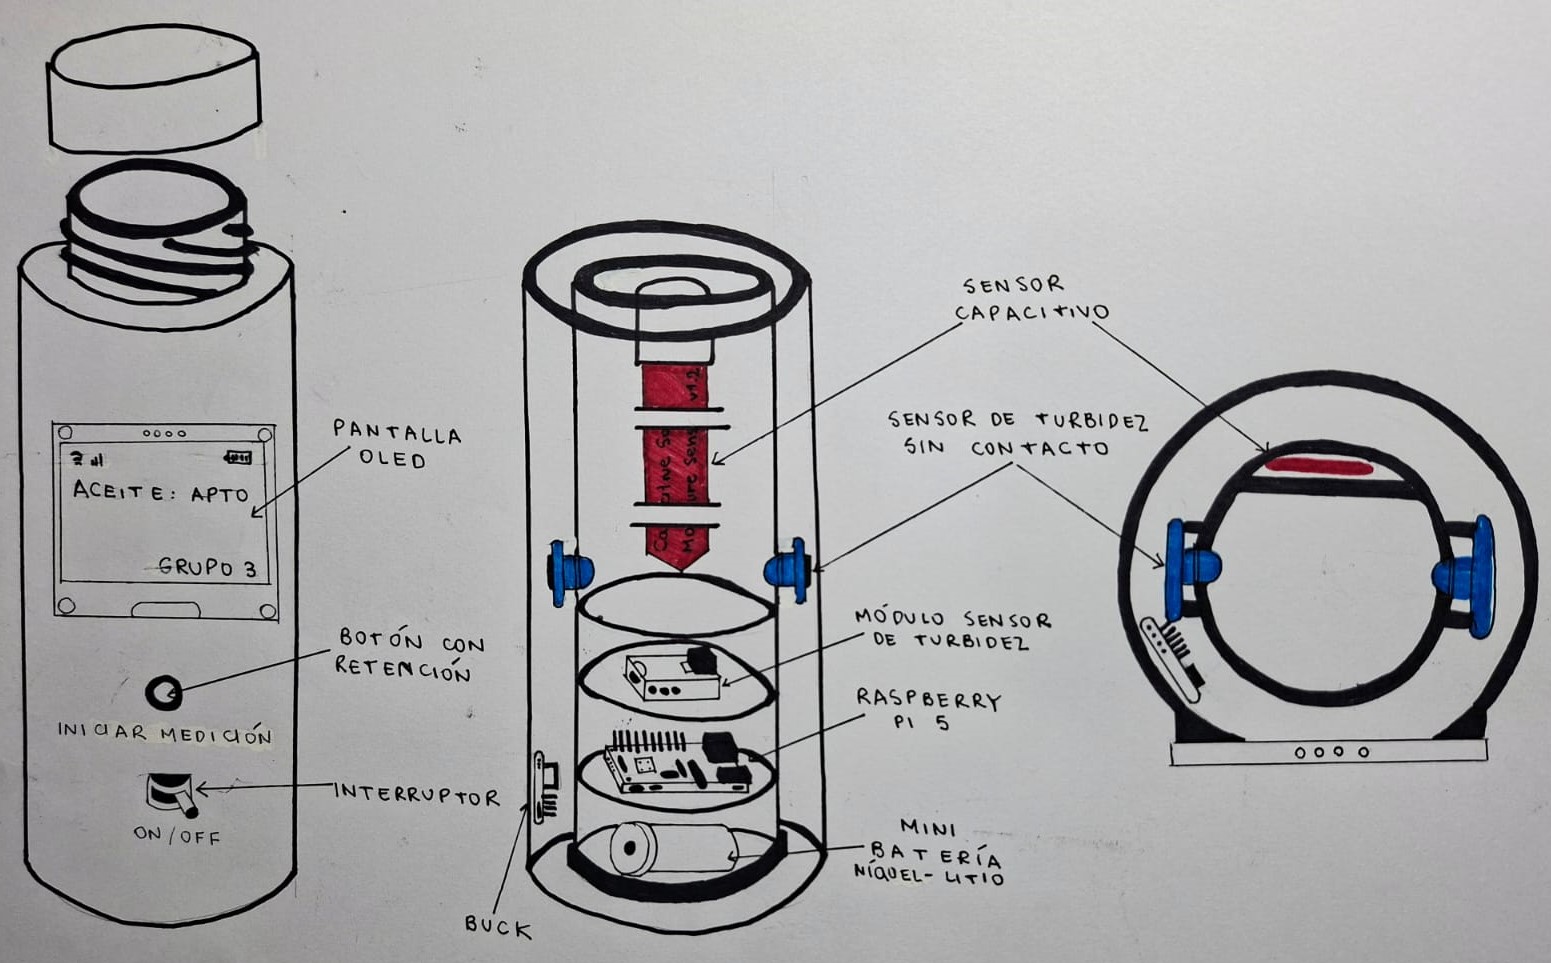 ACEITE: APTO
GRUPO 3
PANTALLA
OLED
BOTÓN CON
RETENCIÓN
INICIAR MEDICIÓN
INTERRUPTOR
ON/OFF
v1.2
SENSOR
CAPACITIVO
SENSOR DE TURBIDEZ
SIN CONTACTO
MÓDULO SENSOR
DE TURBIDEZ
RASPBERRY
PI 5
MINI
BATERÍA
NÍQUEL-LITIO
BUCK